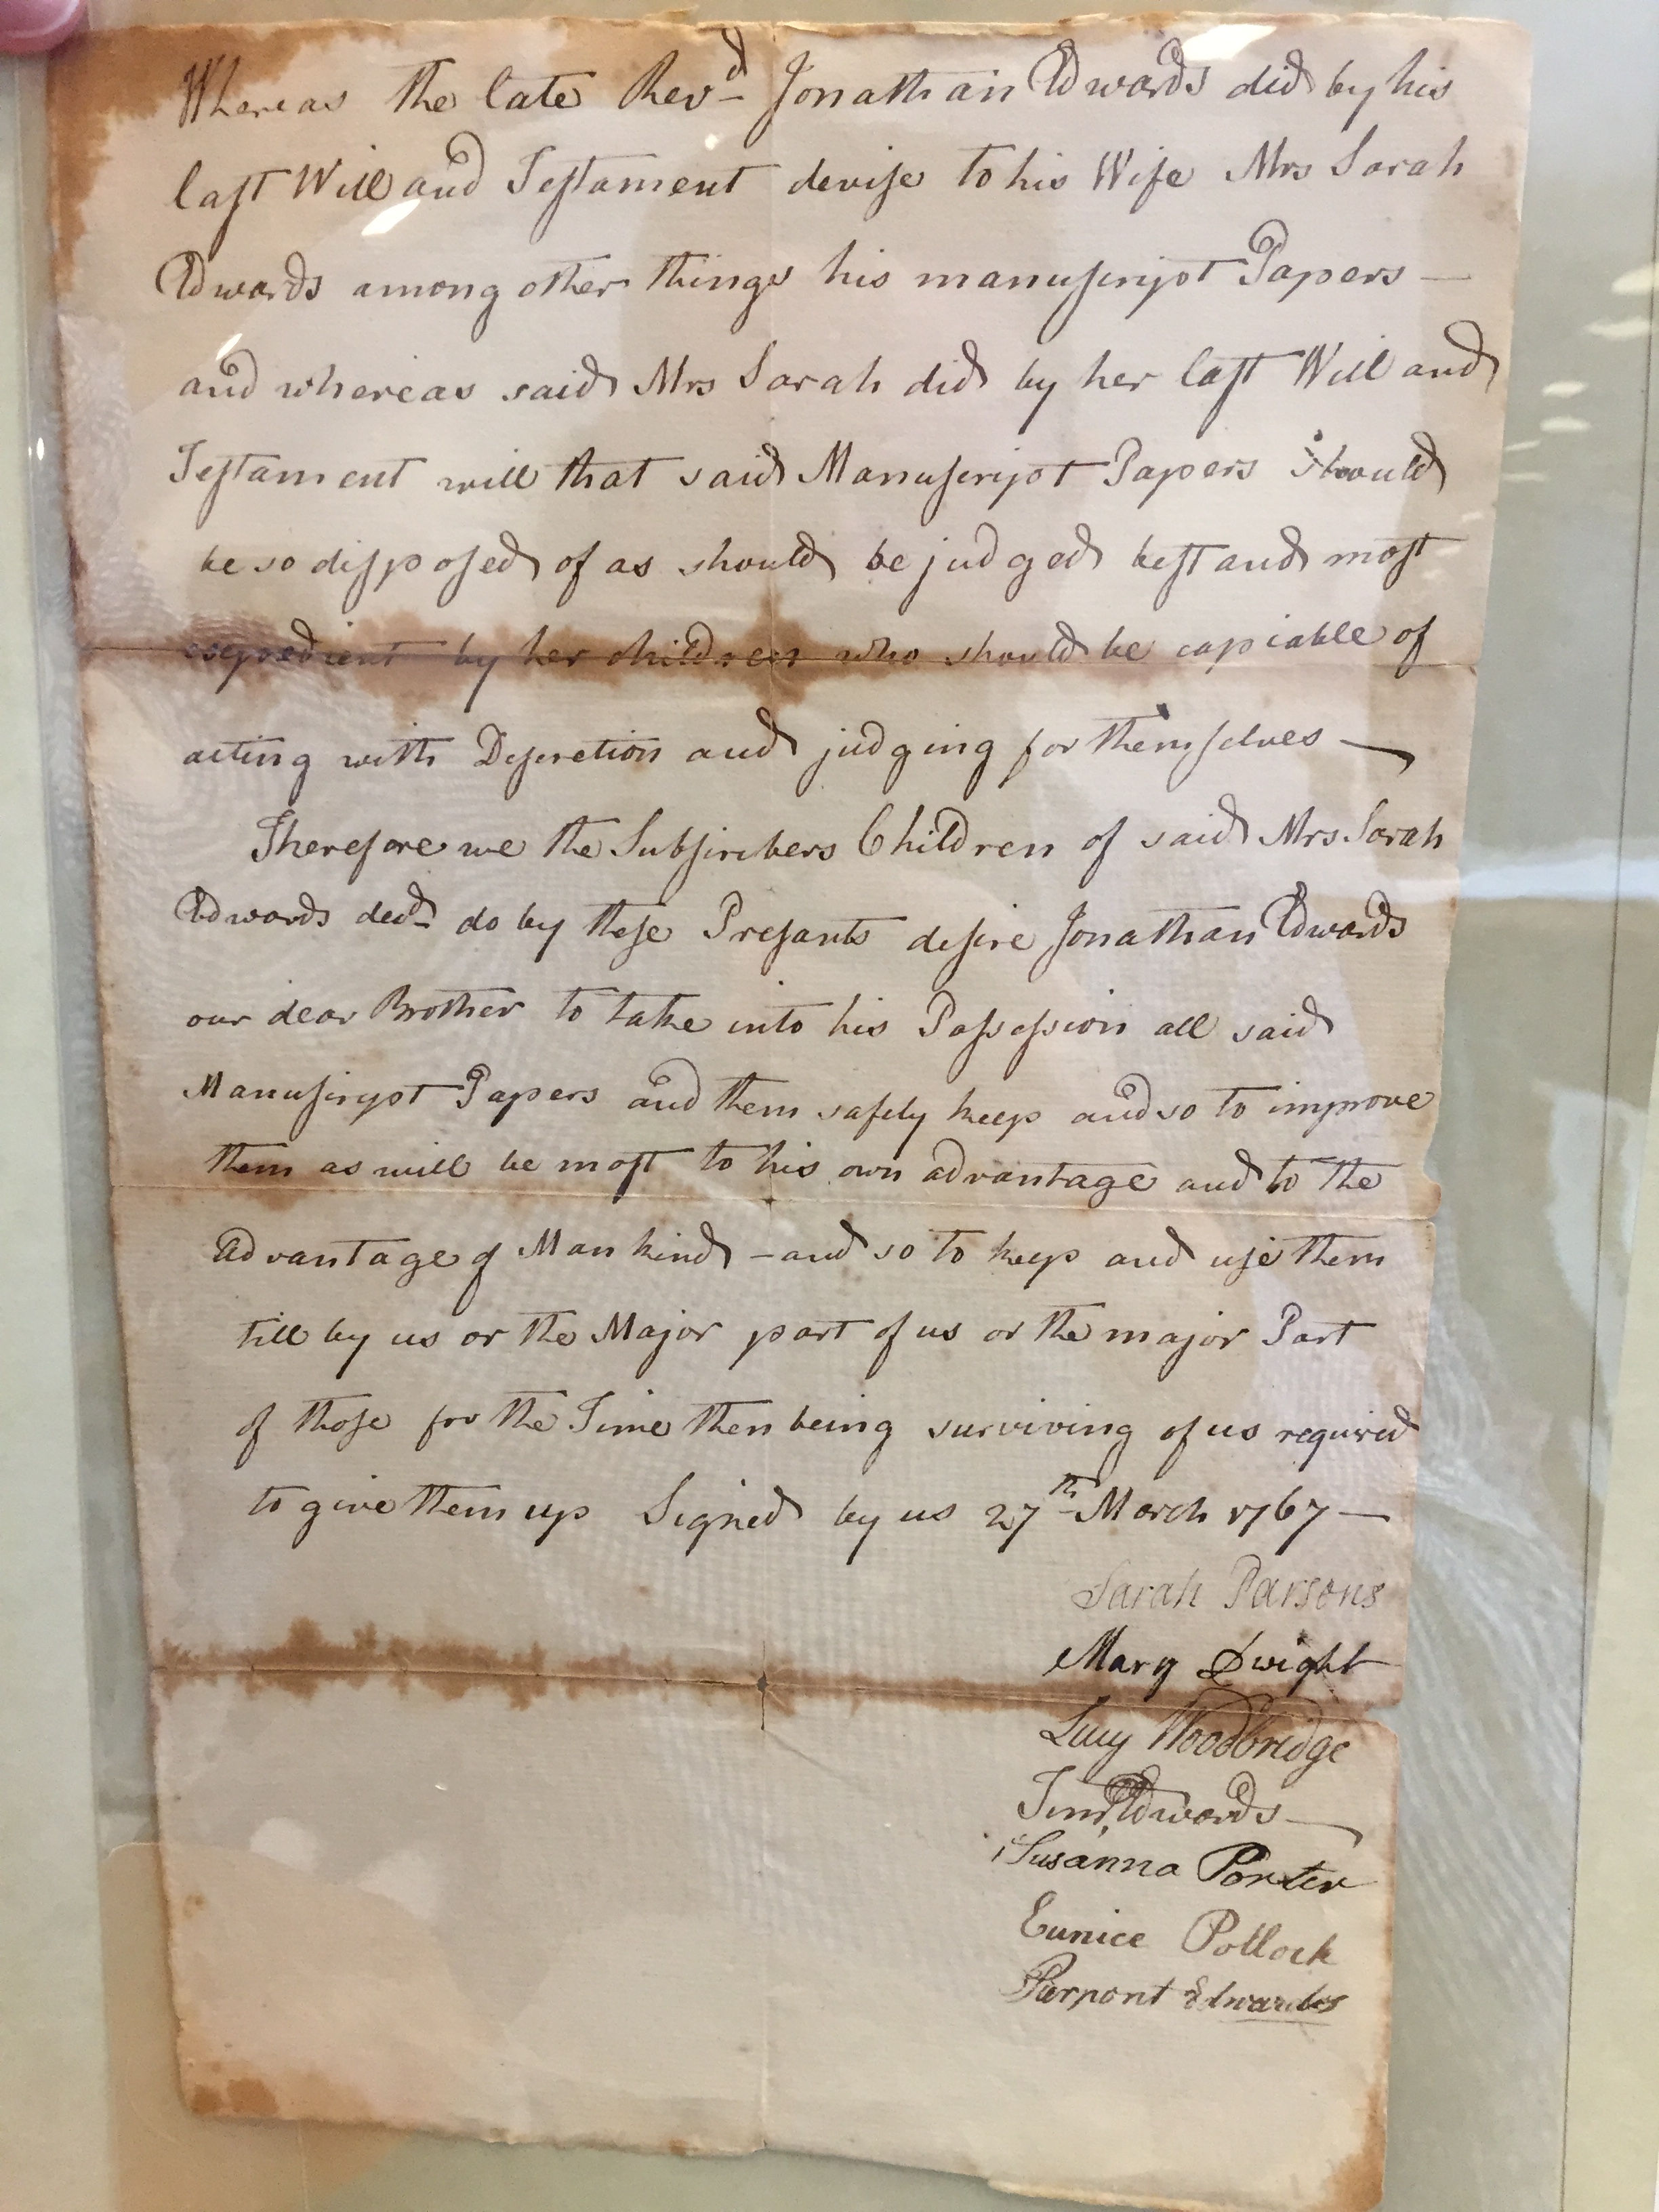 Whereas the late Revd Jonathan Edwards did by his
last Will and Testament devise to his Wife Mrs Sarah
Edwards among other things his manuscript Papers —
and whereas said Mrs Sarah did by her last Will and
Testament will that said Manuscript Papers should
be so disposed of as should be judged best and most
expedient by her children who should be capiable of
acting with Discretion and judging for themselves —
Therefore we the Subscribers Children of said Mrs Sarah
Edwards decd do by these Presants desire Jonathan Edwards
our dear Brother to take into his Possession all said
Manuscript Papers and them safely keep and so to improve
them as will be most to his own advantage and to the
advantage of Mankind – and so to keep and use them
till by us or the Major part of us or the major Part
of those for the Time then being surviving of us required
to give them up Signed by us 27th March 1767 —
Sarah Parsons
Mary Dwight
Lucy Woodbridge
Timy Edwards —
Susanna Porter
Eunice Pollock
Pierpont Edwards